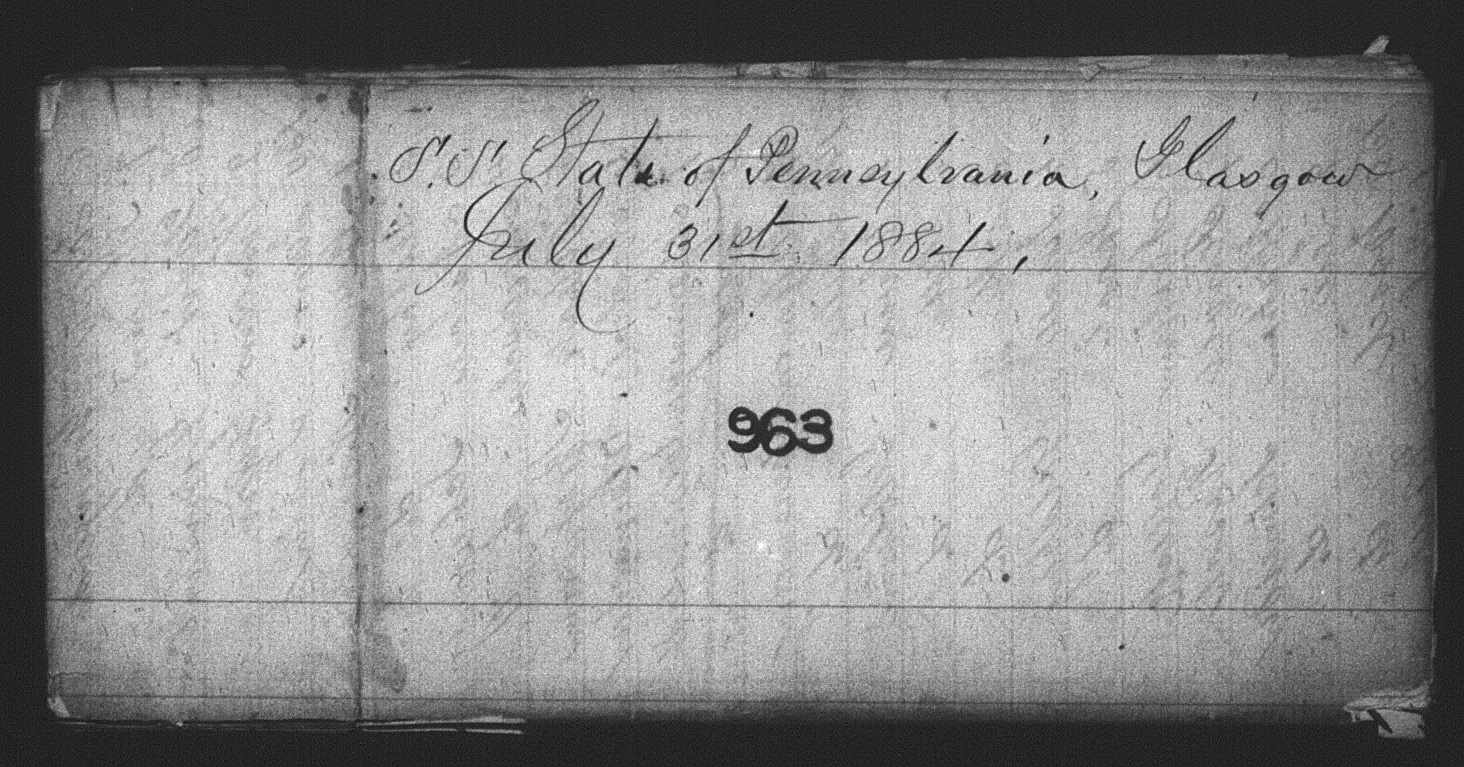 S.S. State of Pennsylvania, Glasgow
July 31st 1884,
963